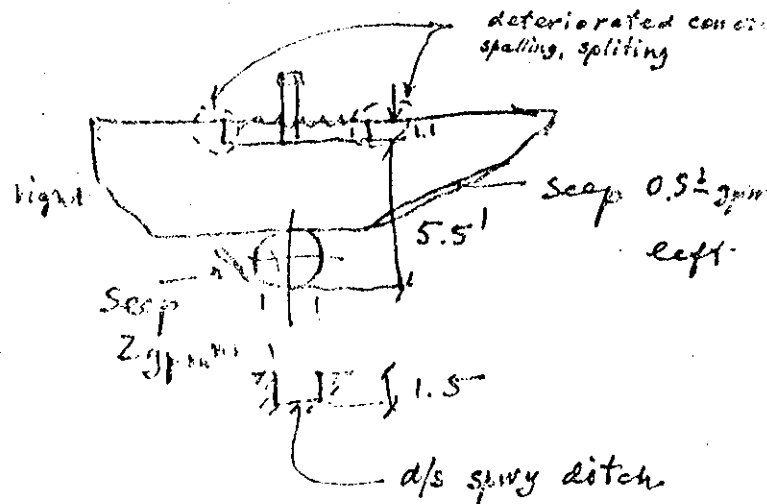 deteriorated conc
spalling, spliting
right
Seep 0.5± gpm
left
5.5'
Seep
2 gpm
1.5
d/s spwy ditch